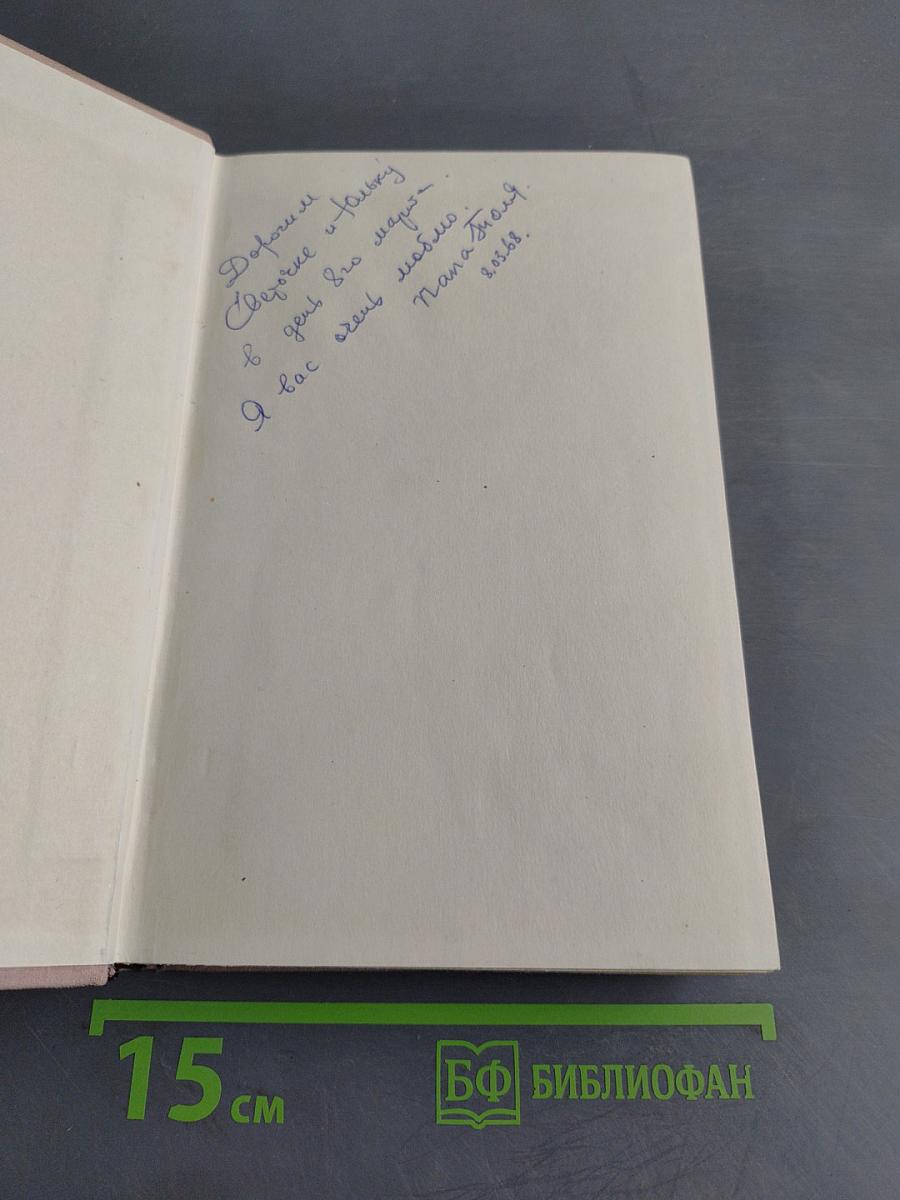 Дорогим
Светочке и Юльку
в день 8го марта.
Я вас очень люблю.
Папа Толя.
8.03.68.
15 см
БФ БИБЛИОФАН